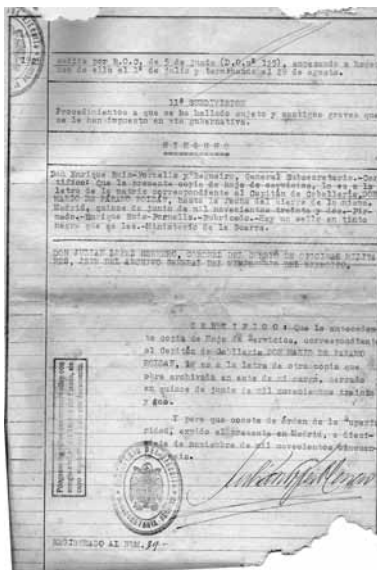 por R.C.C. de 5 de junio (D.O.nº 125), empezando a
de ello el 1º de julio y terminando el 29 de agosto.
11ª SUBDIVISION
Procedimientos a que se ha hallado sujeto y castigos graves que
se le han impuesto en vía gubernativa.
NINGUNO
Don Enrique Ruiz-Fornells y Regueiro, General Subsecretario.-Cer
tifico: Que la presente copia de hoja de servicios, lo es a la
letra de la matriz correspondiente al Capitán de Caballería, DON
MARIO DE PÁRAMO ROLDÁN, hasta la fecha del cierre de la misma.
Madrid, quince de junio de mil novecientos treinta y dos.-Fir-
mado.-Enrique Ruiz-Fornells.-Rubricado.-Hay un sello en tinta
negra que se lee.-Ministerio de la Guerra.
DON JULIAN MORENO, CORONEL DEL CUERPO DE OFICINAS MILITA
RES, JEFE DEL ARCHIVO GENERAL DEL MINISTERIO DEL EJERCITO,
CERTIFICO: Que la anteceden
te copia de Hoja de Servicios, correspondiente
al Capitán de Caballería DON MARIO DE PÁRAMO
ROLDAN, lo es a la letra de otra copia que
obra archivada en este de mi cargo, cerrada
en quince de junio de mil novecientos treinta
y dos.
Y para que conste de órden de la Superio
ridad, expido el presente en Madrid, a dieci-
de noviembre de mil novecientos cincuen-
REGISTRADO AL NUM. 39-